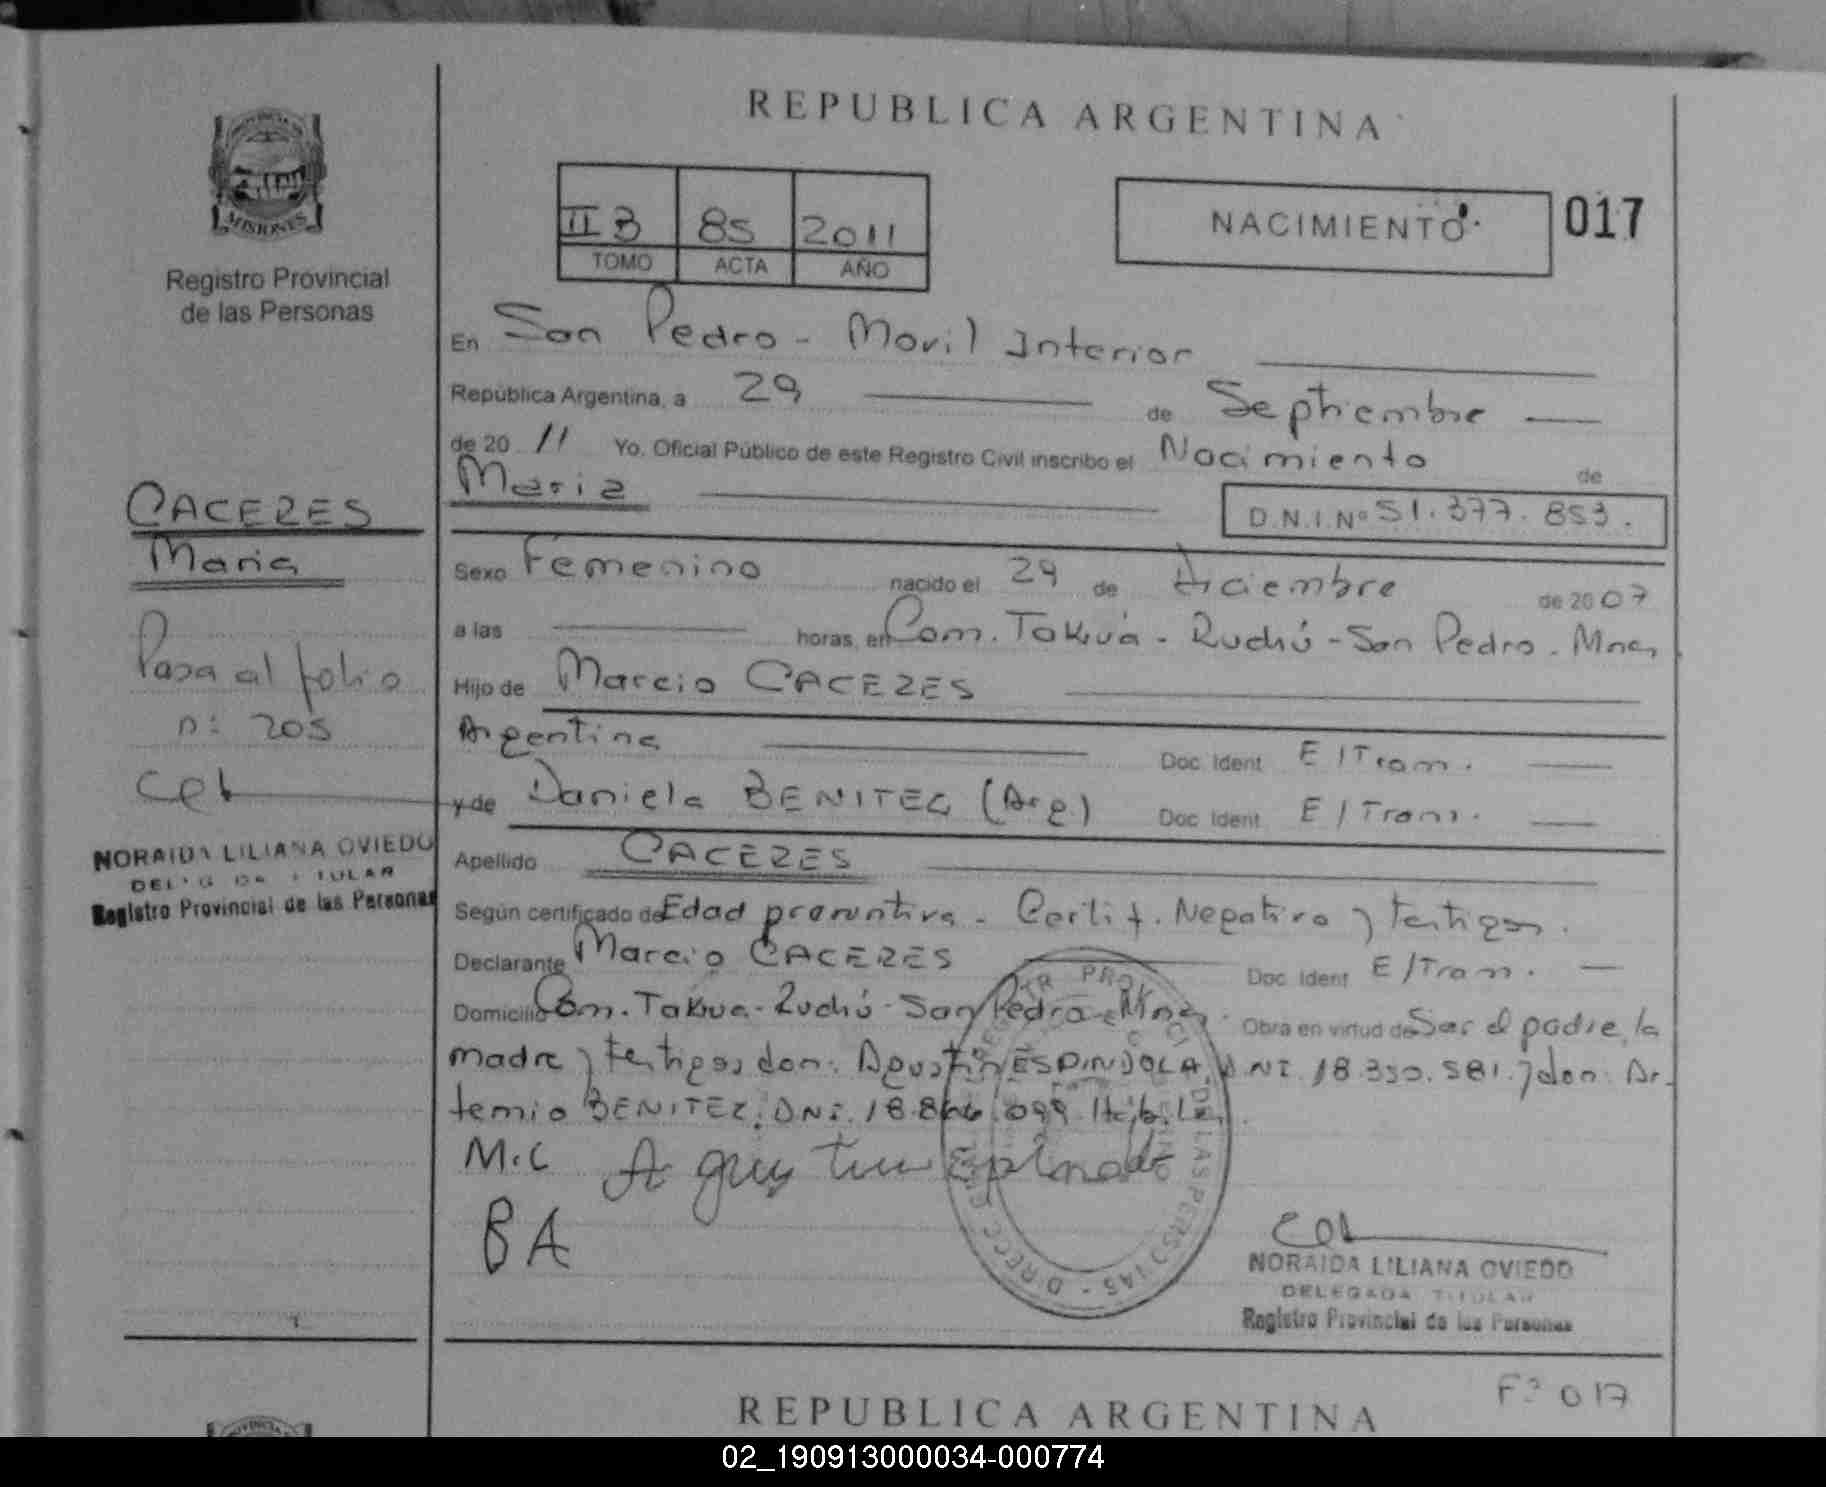 REPUBLICA ARGENTINA
PROVINCIA DE
MISIONES
Registro Provincial
de las Personas
II B 85 2011
TOMO ACTA AÑO
NACIMIENTO
017
En San Pedro - Movil Interior
República Argentina, a 29 de Septiembre
de 20 11 Yo, Oficial Público de este Registro Civil inscribo el Nacimiento de
Maria
D.N.I.Nº 51.377.853.
CACERES
Maria
Pasa al folio
n: 205
NORAIDA LILIANA OVIEDO
DELEGADA TITULAR
Registro Provincial de las Personas
Sexo Femenino nacido el 29 de diciembre de 2007
a las horas, en Com. Takuá - Ruchú - San Pedro - Mnes
Hijo de Marcio CACERES
Argentina Doc. Ident. E/Tram.
y de Daniela BENITEZ (Arg) Doc. Ident. E/Tram.
Apellido CACERES
Según certificado de Edad presuntiva - Certif. Negativo y testigos.
Declarante Marcio CACERES Doc. Ident. E/Tram.
Domicilio Com. Takua - Ruchú - San Pedro - Mnes. Obra en virtud de Ser el padre, la
madre y testigos don: Agustin ESPINDOLA DNI. 18.330.581. y don: Ar-
temio BENITEZ. DNI. 099
M.C Agustin
BA
NORAIDA LILIANA OVIEDO
DELEGADA TITULAR
Registro Provincial de las Personas
Fº 017
REPUBLICA ARGENTINA
02_190913000034-000774